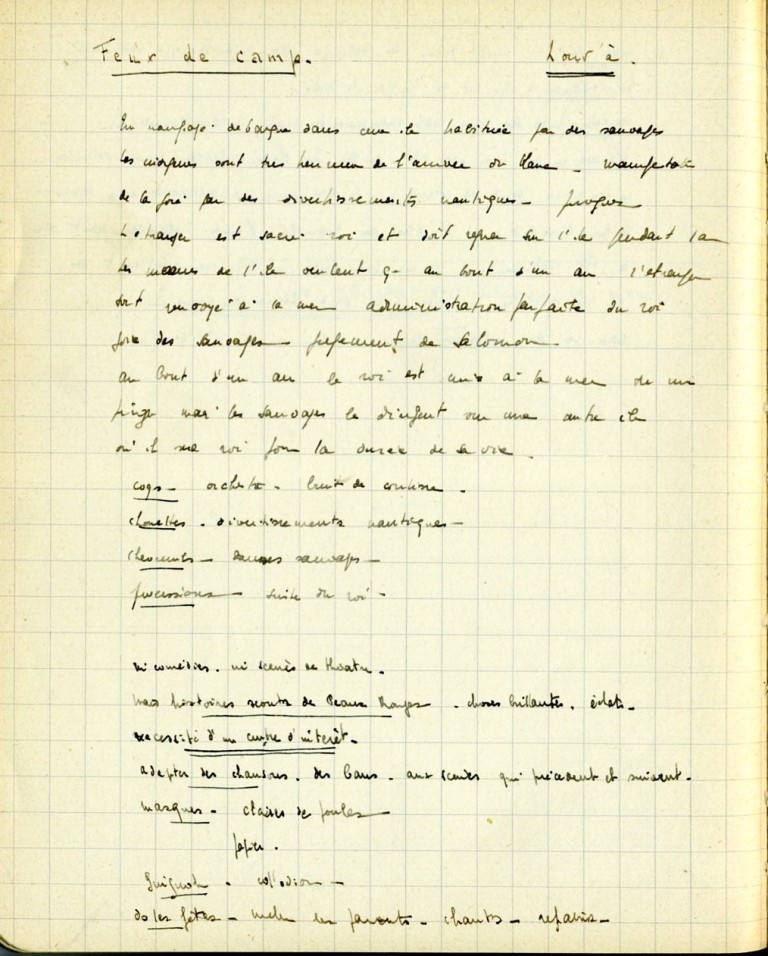 Feux de camp.
Un naufragé débarque dans une île habitée par des sauvages
les indigènes sont très heureux de l'arrivée du blanc - manifestent
de la joie par des divertissements nautiques -
L'étranger est sacré roi et doit régner sur l'île pendant 1 an
les mœurs de l'île veulent q. au bout d'un an l'étranger
soit renvoyé à la mer administration parfaite du roi
joie des sauvages - jugement de Salomon -
au bout d'un an le roi est mis à la mer
mais les sauvages le dirigent sur une autre île
où il sera roi pour la durée de sa vie.
coqs - orchestre - bruit de coulisse.
chouettes - divertissements nautiques -
danses sauvages -
processions - suite du roi -
ni comédies. ni scènes de théâtre.
mais histoires scouts de Beaux Visages - choses brillantes. éclats -
nécessité d'un centre d'intérêt.
adapter des chansons. des bans. aux scènes qui précèdent et suivent.
masques - de poules
papier.
Guignol - 
ds les fêtes - mêler les parents - chants - refrains -